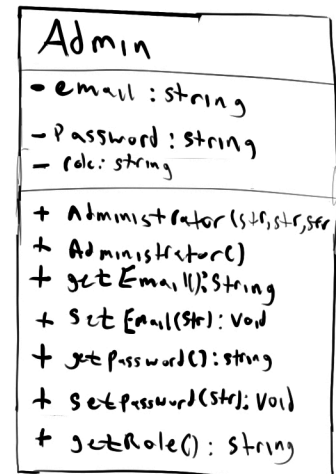 Admin
- email : string
- Password : string
- role: string
+ Administrator(str,str,str
+ Administrator()
+ getEmail():String
+ SetEmail(Str): Void
+ getpassword(): string
+ Setpassword(Str): Void
+ getRole() : String